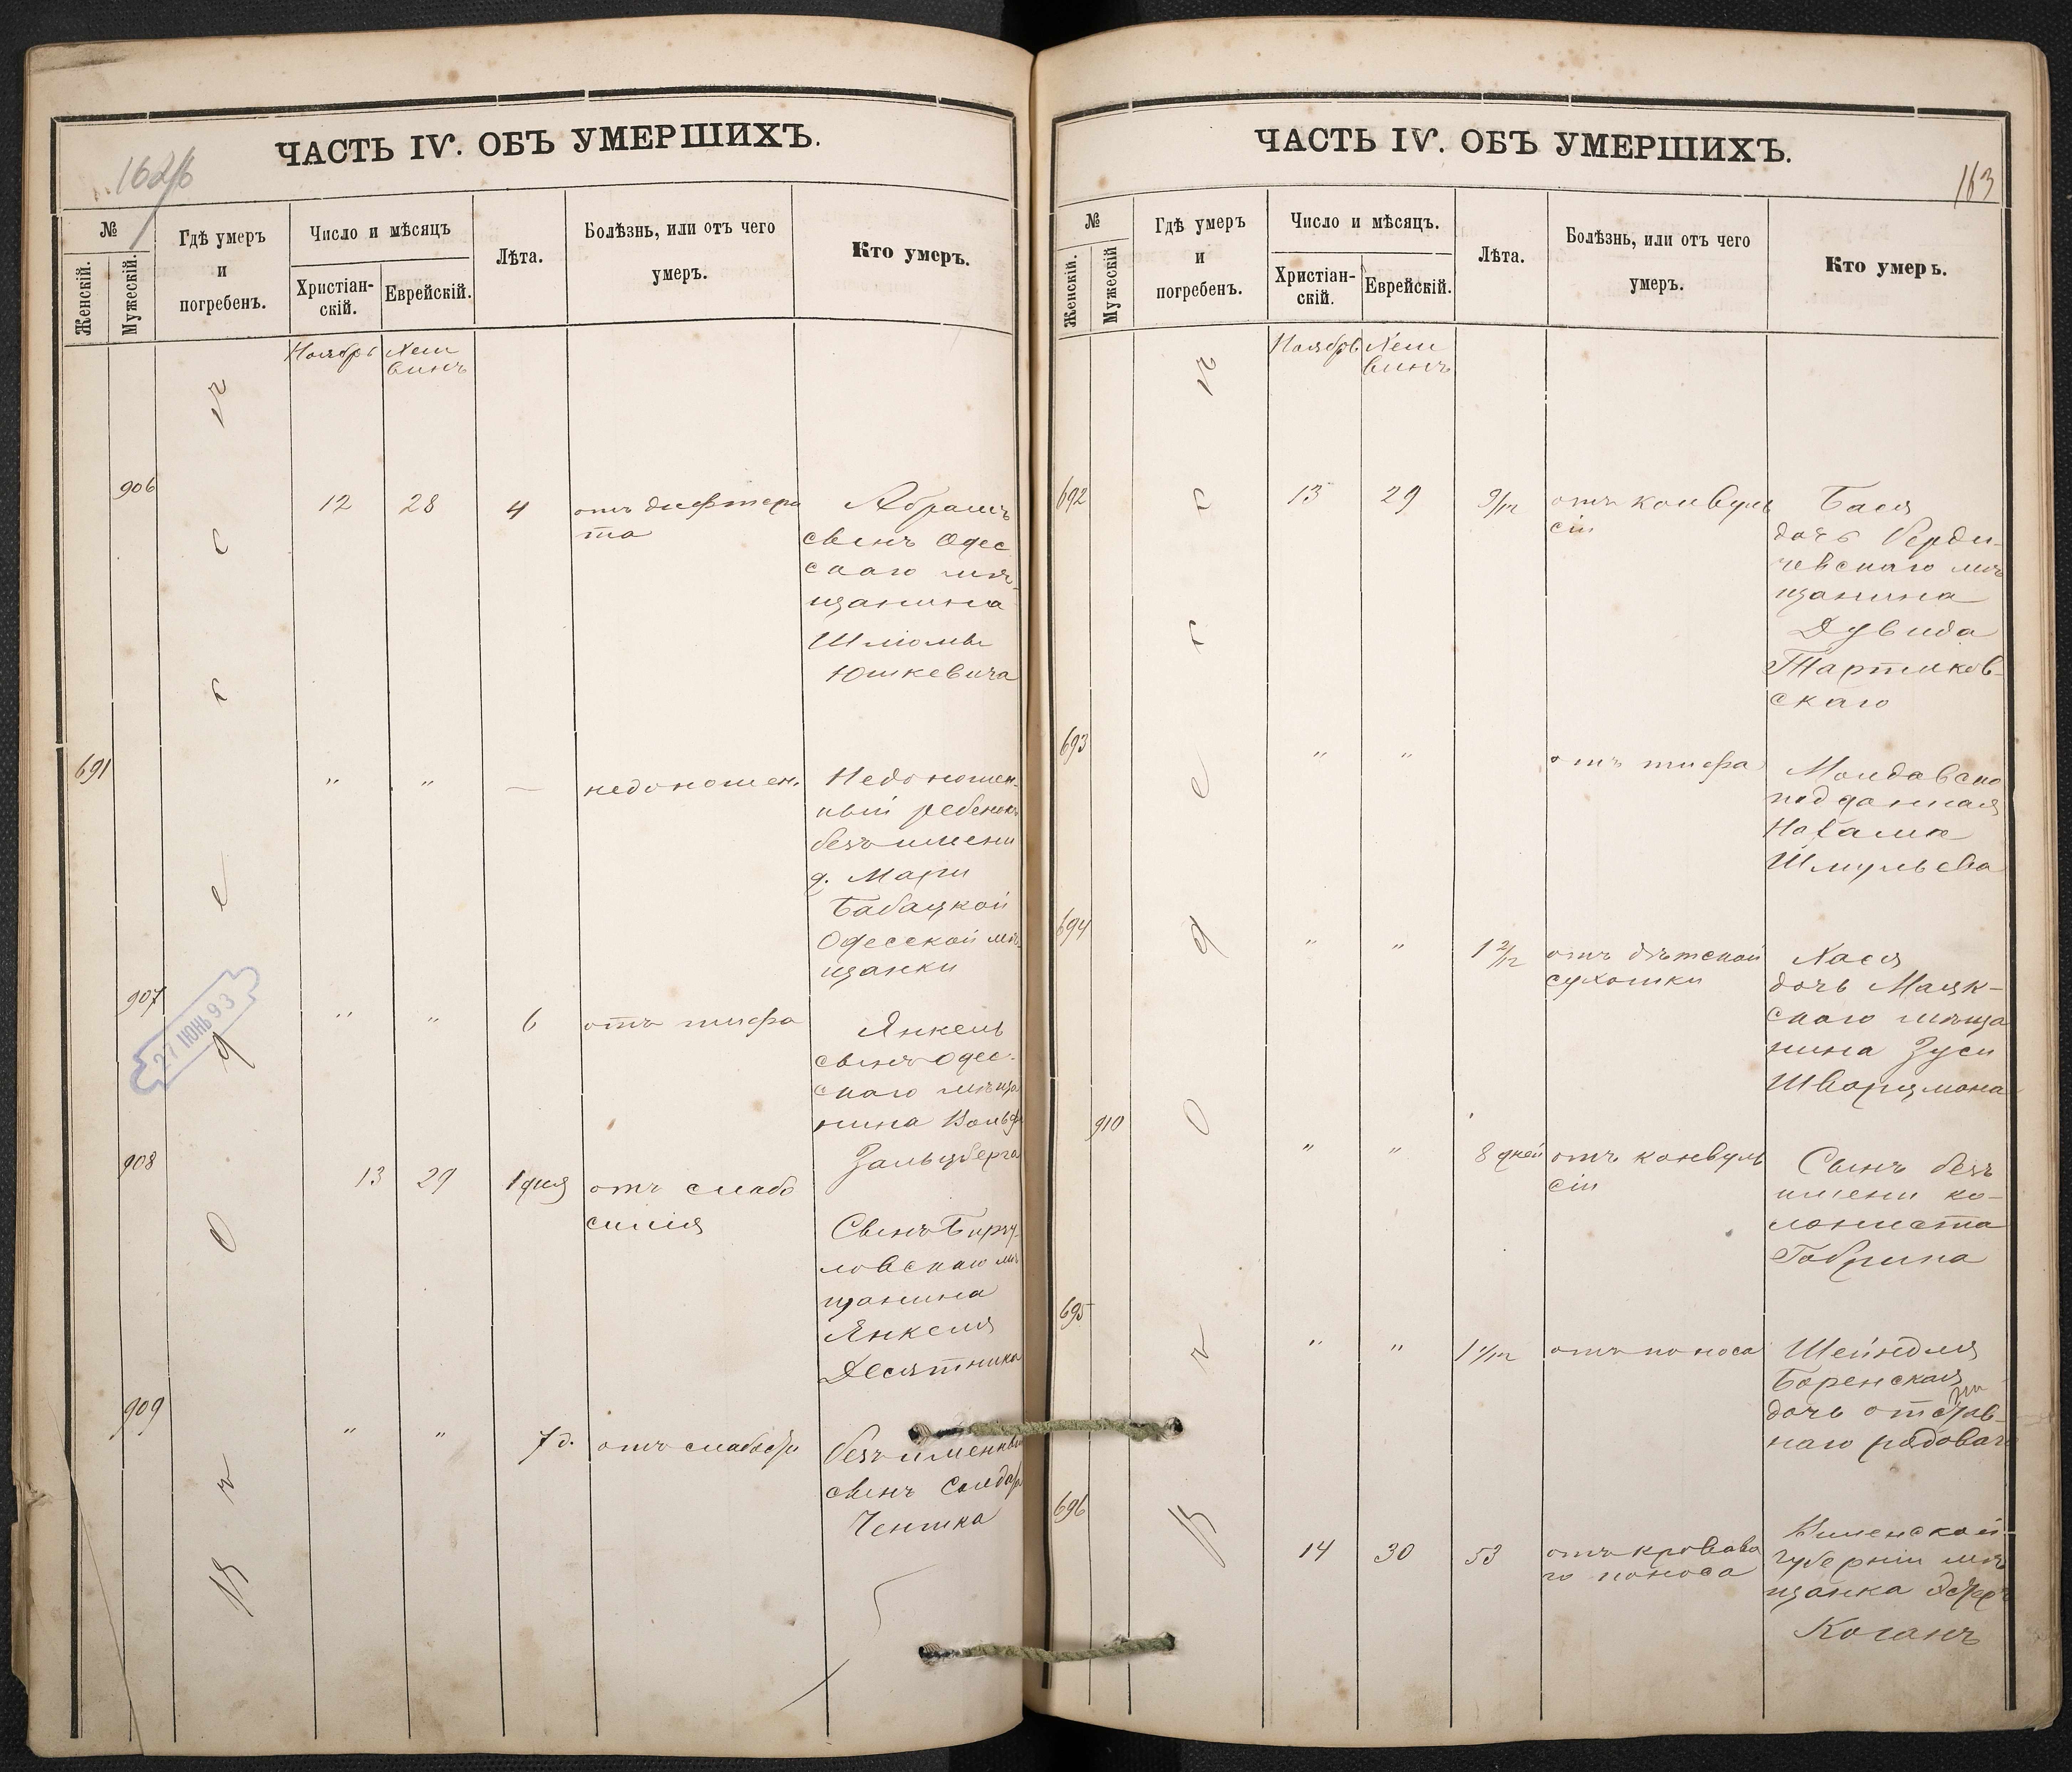 ЧАСТЬ IV. ОБЪ УМЕРШИХЪ.
162/б
№
Женскій.
Мужескій.
Гдѣ умеръ
и
погребенъ.
Число и мѣсяцъ
Христіан-
скій.
Еврейскій.
Лѣта.
Болѣзнь, или отъ чего
умеръ.
Кто умеръ.
Ноябрь
Хеш
винъ
906
12
28
4
отъ дифтери
та
Абрамъ
сынъ Одес
скаго мѣ
щанина
Шломы
Юшкевича
691
"
"
—
недоношен.
Недоношен-
ный ребенокъ
безъ имени
д. Мари
Бабацкой
Одесской мѣ
щанки
907
"
"
6
отъ тифа
Янкель
сынъ Одес-
скаго мѣща
нина Вольфа
Зальцберга
27 ІЮНЬ 93
908
13
29
1 дня
отъ слабо
силія
Сынъ Бирзу-
ловскаго мѣ
щанина
Янкеля
Десятника
909
"
"
7 д.
отъ слабости
безъименный
сынъ Солдата
въ Одессѣ
ЧАСТЬ IV. ОБЪ УМЕРШИХЪ.
163
№
Женскій.
Мужескій
Гдѣ умеръ
и
погребенъ.
Число и мѣсяцъ.
Христіан-
скій.
Еврейскій.
Лѣта.
Болѣзнь, или отъ чего
умеръ.
Кто умеръ.
Ноябрь
Хеш
винъ
692
13
29
9/12
отъ конвуль
сіи
Бася
дочь Берди-
чевскаго мѣ
щанина
Дувида
Тартаков-
скаго
693
"
"
отъ тифа
Молдавско
подданная
Шмульева
694
"
"
1 2/12
отъ дѣтской
сухотки
Хася
дочь Маяк-
скаго мѣща
нина Зуси
Шварцмана
910
"
"
8 дней
отъ конвуль
сіи
Сынъ безъ
имени ко-
лониста
Габрина
695
"
"
отъ поноса
Шейндля
Боренская
дочь отстав-
наго рядоваго
696
14
30
53
отъ кровава
го поноса
Виленской
губерніи мѣ
щанка
Коганъ
въ Одессѣ